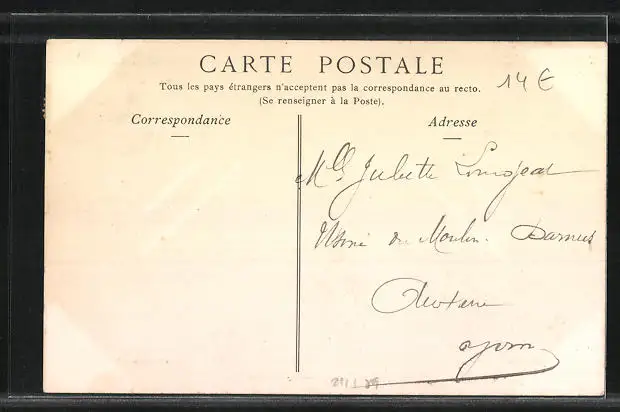 CARTE POSTALE
14€
Tous les pays étrangers n'acceptent pas la correspondance au recto.
(Se renseigner à la Poste).
Correspondance
Adresse
Mlle Juliette
Usine du Moulin
Auxerre
Yonne